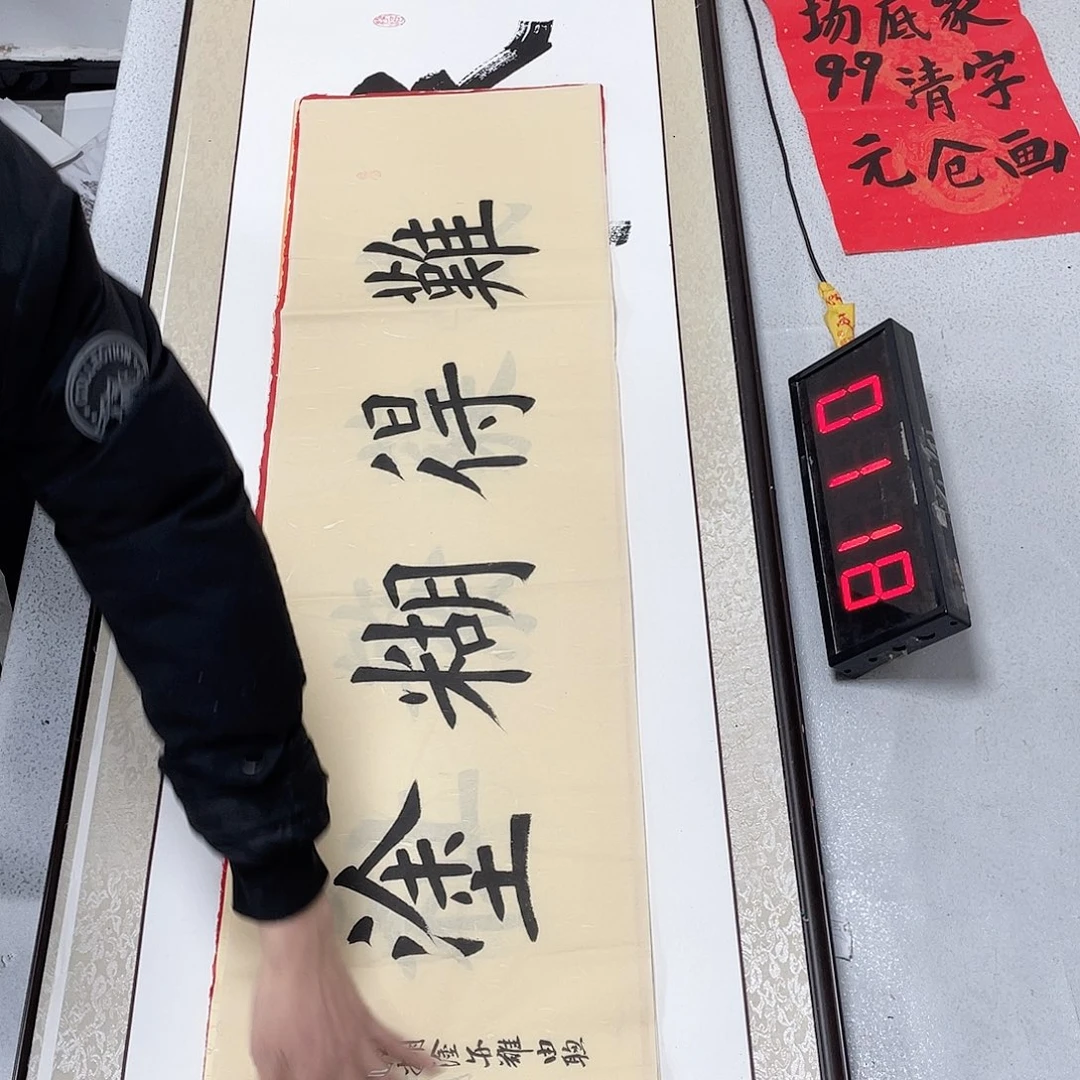 難得糊塗
糊塗 難由聰
家字画
底清仓
场9.9元
0118